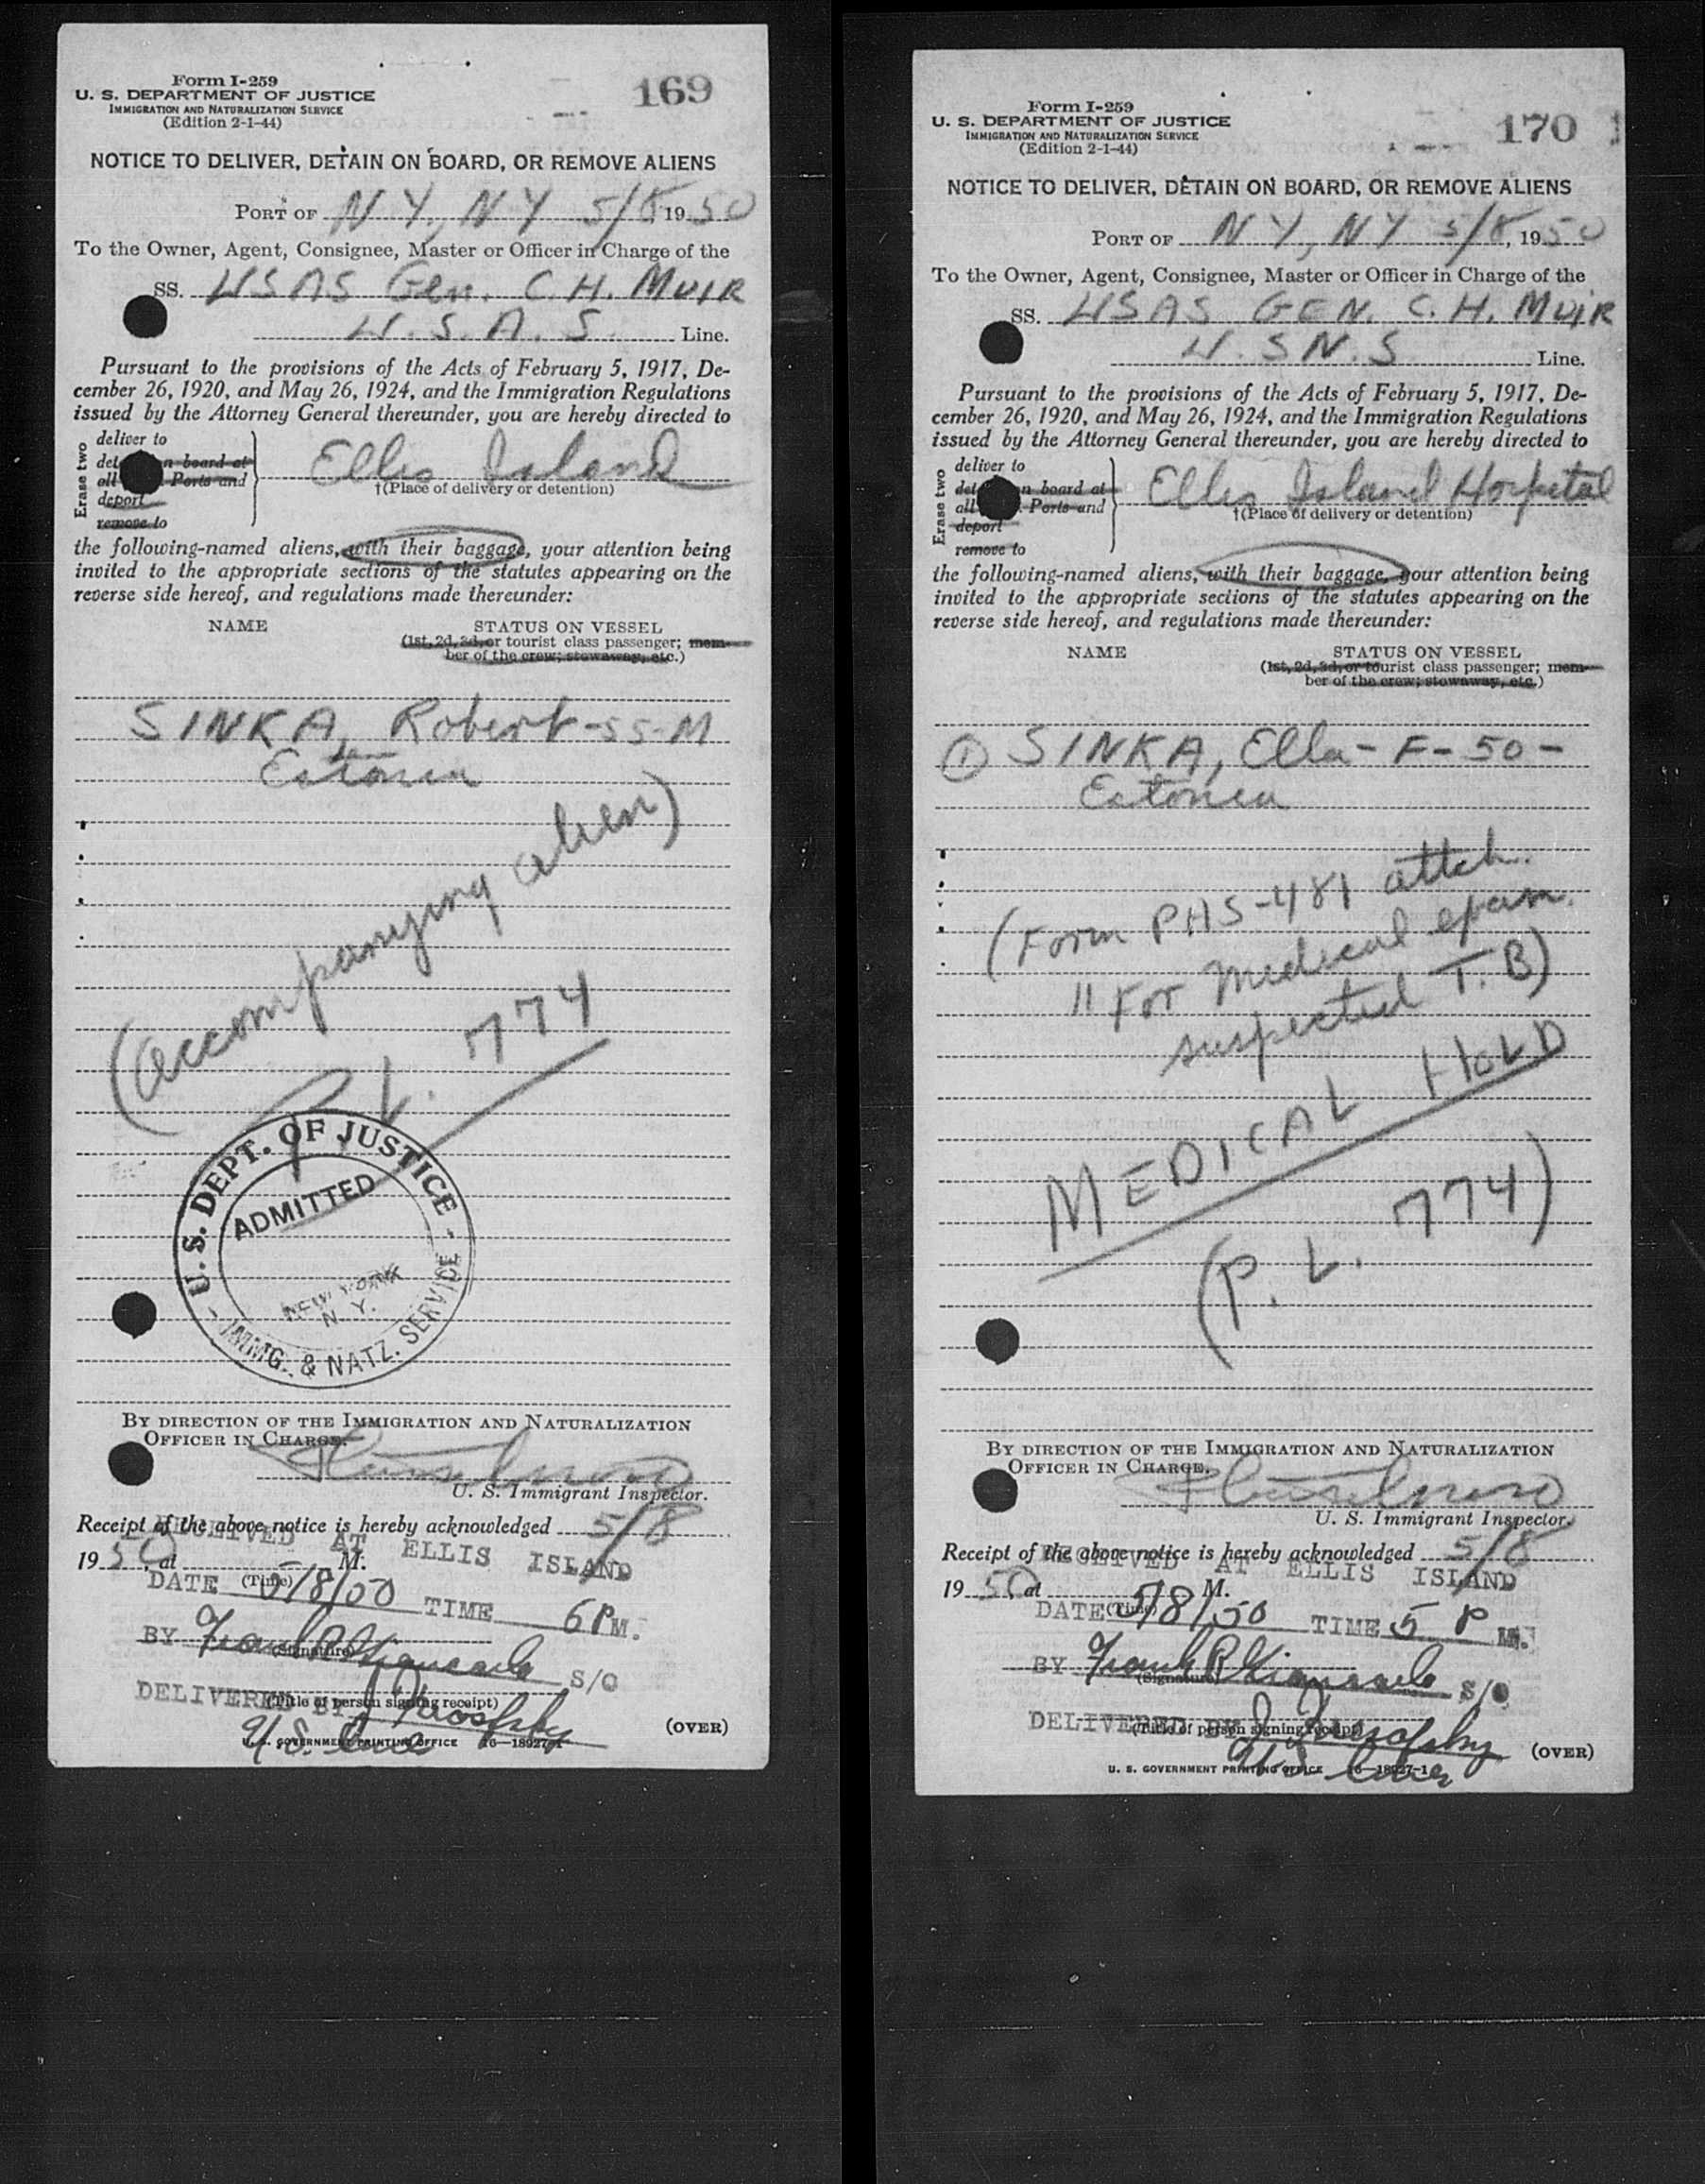 Form I-259
U. S. DEPARTMENT OF JUSTICE
IMMIGRATION AND NATURALIZATION SERVICE
(Edition 2-1-44)
169
NOTICE TO DELIVER, DETAIN ON BOARD, OR REMOVE ALIENS
PORT OF N Y, N Y 5/8 1950
To the Owner, Agent, Consignee, Master or Officer in Charge of the
SS. USAS Gen. C. H. MUIR
U. S. A. S. Line.
Pursuant to the provisions of the Acts of February 5, 1917, De-
cember 26, 1920, and May 26, 1924, and the Immigration Regulations
issued by the Attorney General thereunder, you are hereby directed to
Erase two
deliver to
det n board at
all Ports and
deport
remove to
Ellis Island
†(Place of delivery or detention)
the following-named aliens, with their baggage, your attention being
invited to the appropriate sections of the statutes appearing on the
reverse side hereof, and regulations made thereunder:
NAME STATUS ON VESSEL
(1st, 2d, 3d, or tourist class passenger; mem-
ber of the crew; stowaway, etc.)
SINKA, Robert-55-M
Estonia
(accompanying alien)
P. L. 774
U. S. DEPT. OF JUSTICE
ADMITTED
NEW YORK
N. Y.
IMMG. & NATZ. SERVICE
BY DIRECTION OF THE IMMIGRATION AND NATURALIZATION
OFFICER IN CHARGE.
U. S. Immigrant Inspector.
Receipt of the above notice is hereby acknowledged 5/8
RECEIVED AT ELLIS ISLAND
1950, at M.
(Time)
DATE 5/8/50 TIME 6 P M.
BY Frank R S/O
(Signature)
DELIVERED BY
(Title of person signing receipt)
(OVER)
U. S.
U. S. GOVERNMENT PRINTING OFFICE 16—18927-1
Form I-259
U. S. DEPARTMENT OF JUSTICE
IMMIGRATION AND NATURALIZATION SERVICE
(Edition 2-1-44)
170
NOTICE TO DELIVER, DETAIN ON BOARD, OR REMOVE ALIENS
PORT OF N Y, N Y 5/8, 1950
To the Owner, Agent, Consignee, Master or Officer in Charge of the
SS. USAS GEN. C. H. MUIR
U. S N. S Line.
Pursuant to the provisions of the Acts of February 5, 1917, De-
cember 26, 1920, and May 26, 1924, and the Immigration Regulations
issued by the Attorney General thereunder, you are hereby directed to
Erase two
deliver to
det n board at
all Ports and
deport
remove to
Ellis Island Hospital
†(Place of delivery or detention)
the following-named aliens, with their baggage, your attention being
invited to the appropriate sections of the statutes appearing on the
reverse side hereof, and regulations made thereunder:
NAME STATUS ON VESSEL
(1st, 2d, 3d, or tourist class passenger; mem-
ber of the crew; stowaway, etc.)
① SINKA, Ella - F - 50 -
Estonia
(Form PHS-481 attch.
" For Medical exam.
suspected T. B)
MEDICAL HOLD
(P. L. 774)
BY DIRECTION OF THE IMMIGRATION AND NATURALIZATION
OFFICER IN CHARGE.
U. S. Immigrant Inspector.
Receipt of the above notice is hereby acknowledged 5/8
RECEIVED AT ELLIS ISLAND
1950, at M.
(Time)
DATE 5/8/50 TIME 5 P M.
BY Frank R S/O
(Signature)
DELIVERED BY
(Title of person signing receipt)
(OVER)
U. S. GOVERNMENT PRINTING OFFICE 16—18927-1